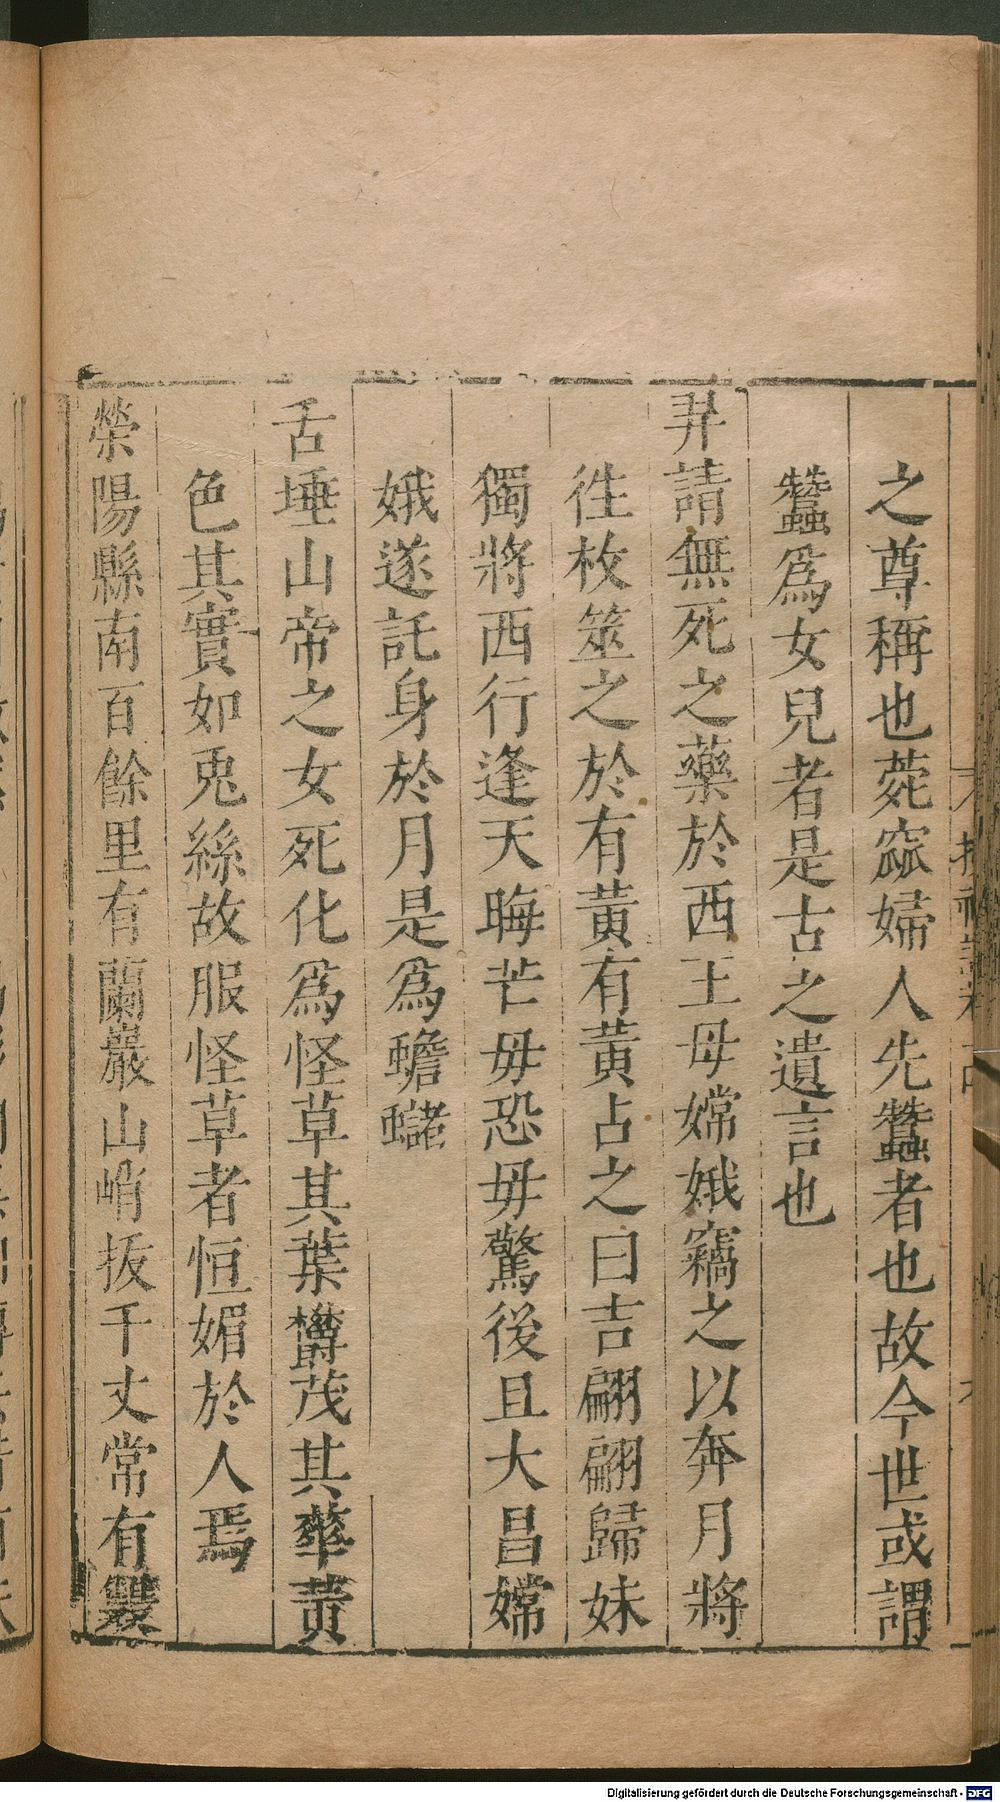 之尊稱也菀窳婦人先蠶者也故今世或謂
蠶爲女兒者是古之遺言也
羿請無死之藥於西王母嫦娥竊之以奔月將
徃枚筮之於有黃有黃占之曰吉翩翩歸妹
獨將西行逢天晦芒毋恐毋驚後且大昌嫦
娥遂託身於月是爲蟾蠩
舌埵山帝之女死化爲怪草其葉欝茂其華黃
色其實如兎絲故服怪草者恒媚於人焉
滎陽縣南百餘里有蘭巖山峭拔千丈常有雙
Digitalisierung gefördert durch die Deutsche Forschungsgemeinschaft - DFG